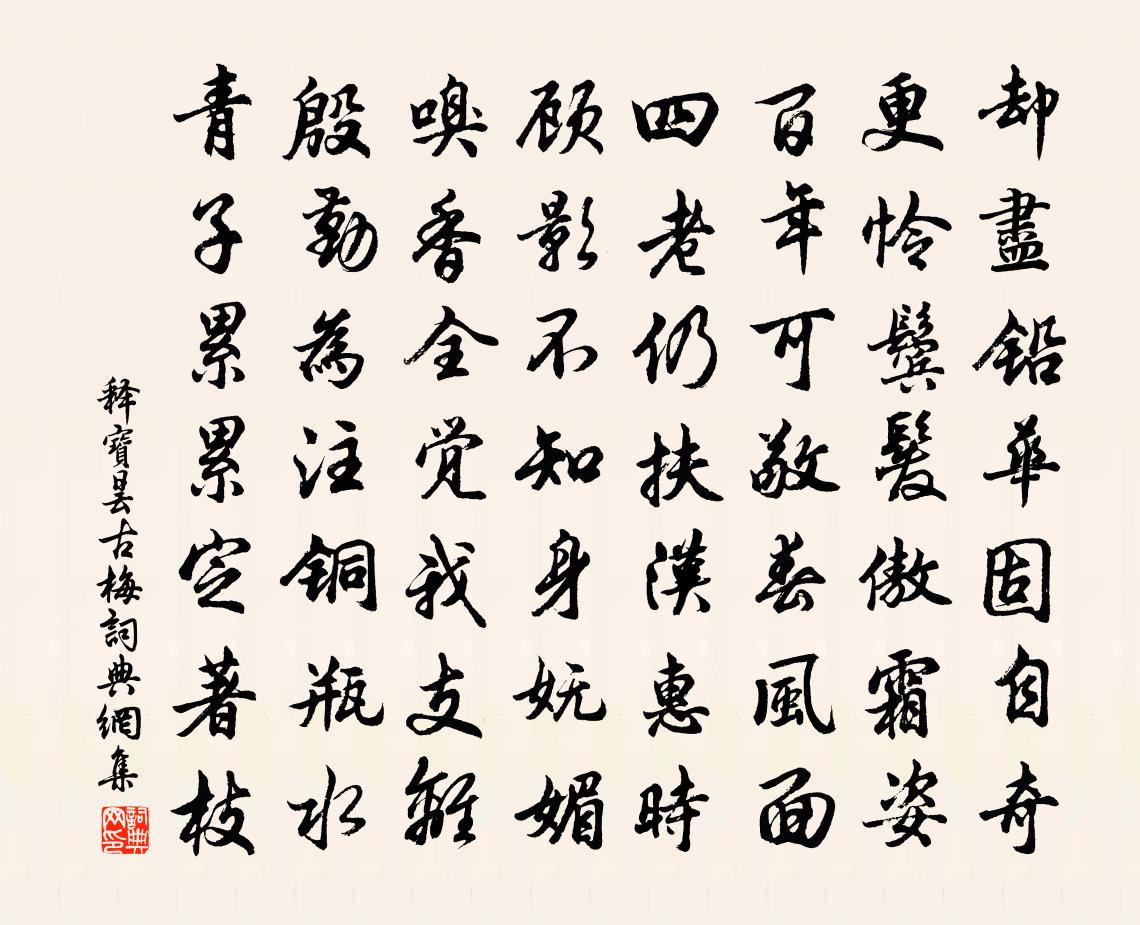 却盡鉛華固自奇
更怜鬓髮傲霜姿
百年可敬春風面
四老仍扶漢惠時
顾影不知身妩媚
嗅香全觉我支離
殷勤為注銅瓶水
青子累累定著枝
释寶昙古梅詞典網集
詞典網印